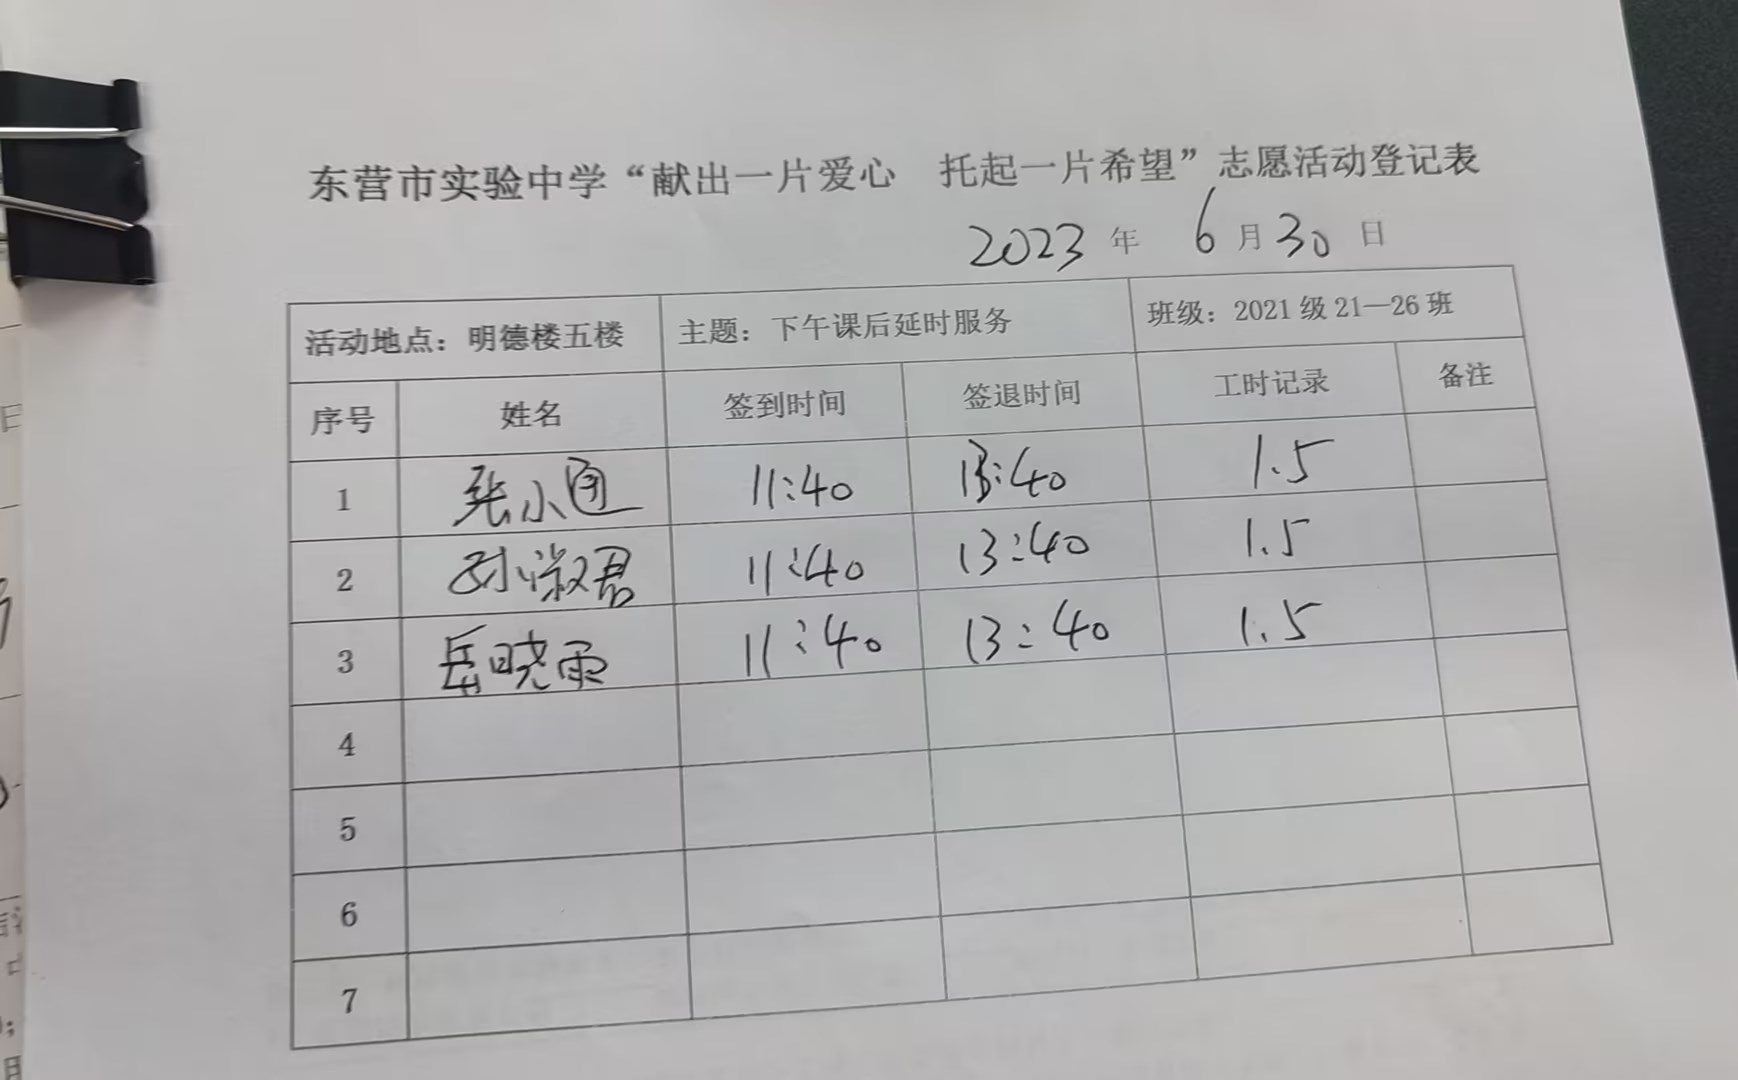 东营市实验中学“献出一片爱心 托起一片希望”志愿活动登记表
2023 年 6 月 30 日
活动地点：明德楼五楼 主题：下午课后延时服务 班级：2021 级 21—26 班
序号 姓名 签到时间 签退时间 工时记录 备注
1 张小 11:40 13:40 1.5
2 孙淑君 11:40 13:40 1.5
3 岳晓雨 11:40 13:40 1.5
4
5
6
7